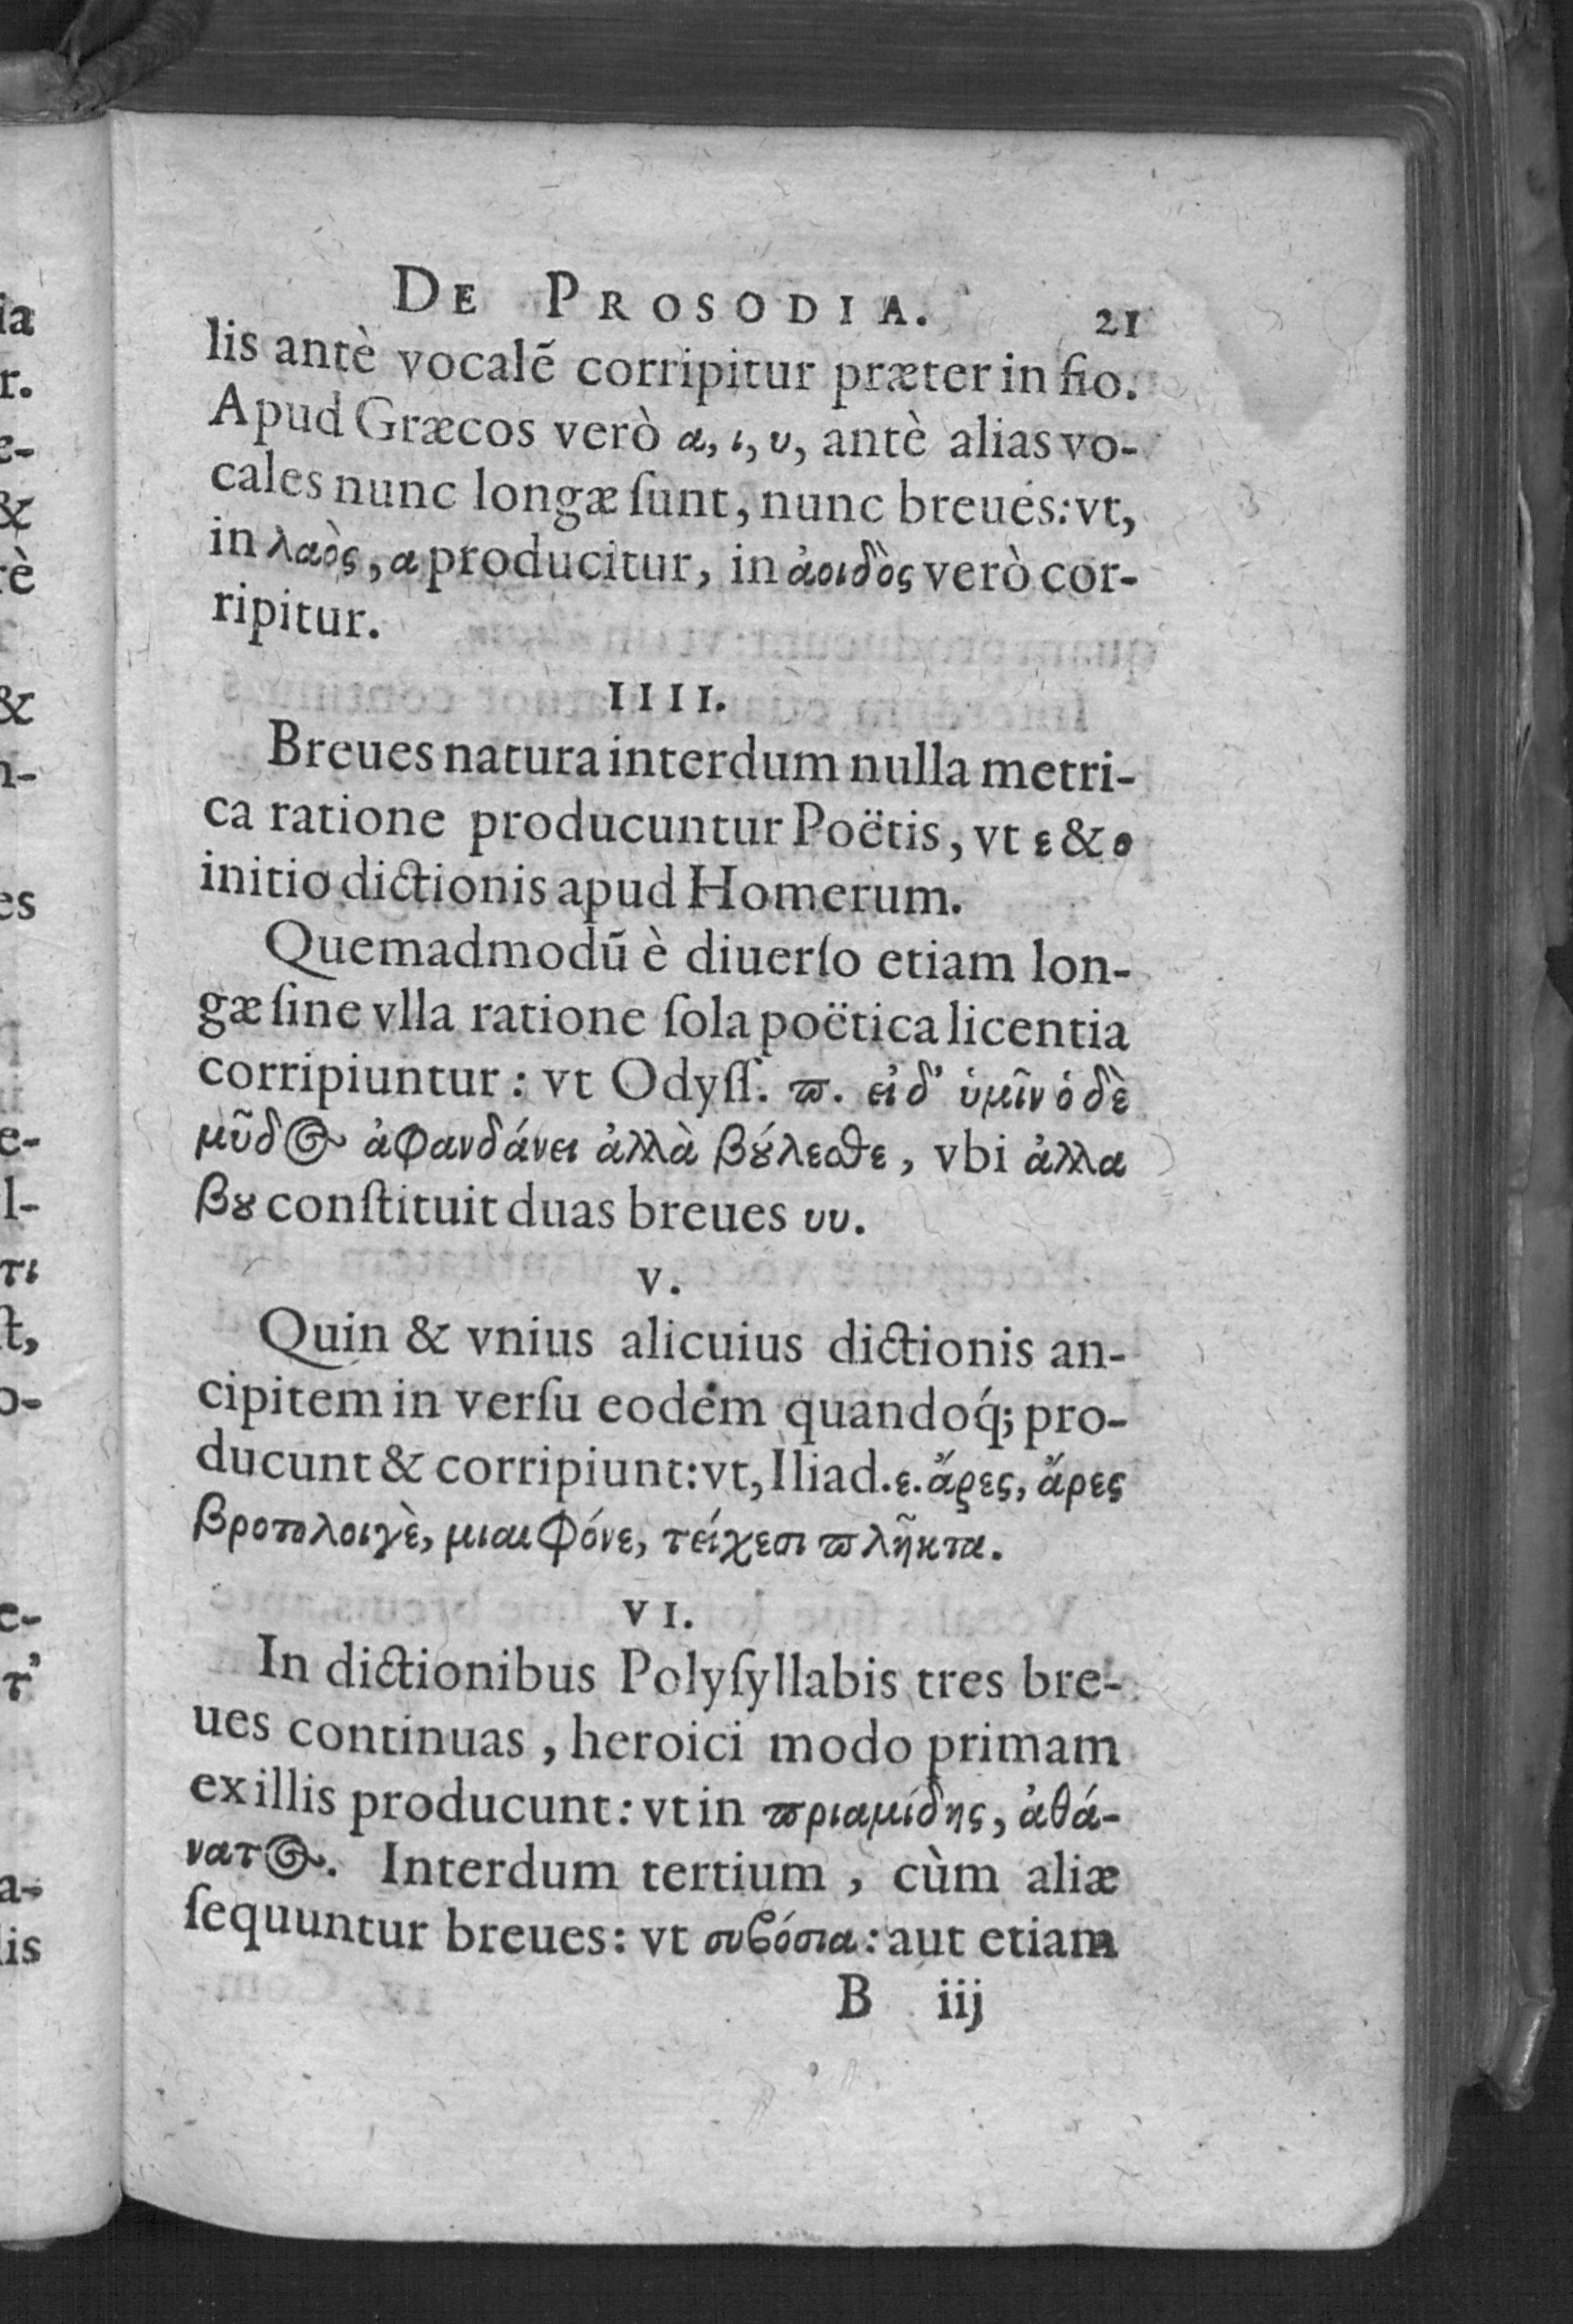 DE PROSODIA. 21
lis antè vocalẽ corripitur præter in fio.
Apud Græcos verò α, ι, υ, antè alias vo-
cales nunc longæ ſunt, nunc breues: vt,
in λαὸς, α producitur, in ἀοιδὸς verò cor-
ripitur.
IIII.
Breues natura interdum nulla metri-
ca ratione producuntur Poëtis, vt ε & ο
initio dictionis apud Homerum.
Quemadmodũ è diuerſo etiam lon-
gæ ſine vlla ratione ſola poëtica licentia
corripiuntur: vt Odyſſ. ϖ. εἰ δ' ὑμῖν ὁ δὲ
μῦδος ἀφανδάνει ἀλλὰ βȣ́λεσθε, vbi ἀλλα
βȣ conſtituit duas breues υυ.
V.
Quin & vnius alicuius dictionis an-
cipitem in verſu eodem quandoq́; pro-
ducunt & corripiunt: vt, Iliad. ε. ἄρες, ἄρες
βροτολοιγὲ, μιαιφόνε, τείχεσι ϖλῆκτα.
VI.
In dictionibus Polyſyllabis tres bre-
ues continuas, heroici modo primam
ex illis producunt: vt in ϖριαμίδης, ἀθά-
νατος. Interdum tertium, cùm aliæ
ſequuntur breues: vt συβόσια: aut etiam
B iij
ia
r.
e-
&
rè
&
n-
es
e-
l-
τι
ſt,
o-
e-
τ'
a-
lis